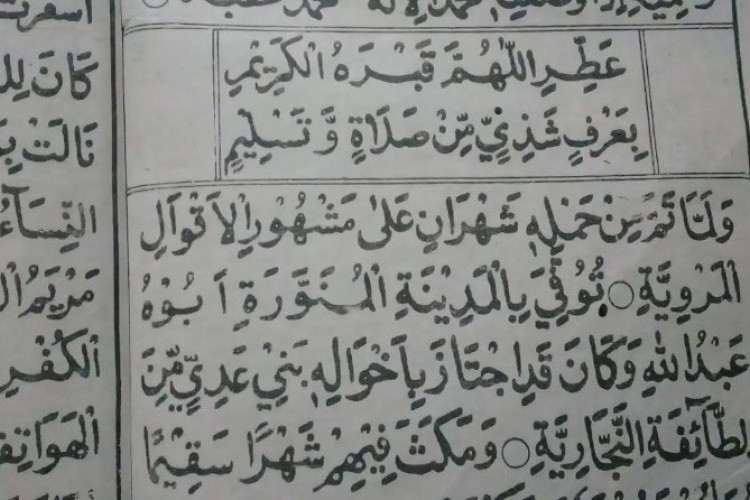 عَطِّرِ اللّٰهُمَّ قَبْرَهُ الْكَرِيْمِ
بِعَرْفٍ شَذِيٍّ مِّنْ صَلَاةٍ وَّتَسْلِيْمٍ
وَلَمَّا تَمَّ مِنْ حَمْلِهٖ شَهْرَانِ عَلٰى مَشْهُوْرِ الْاَقْوَالِ
الْمَرْوِيَّةِ ○ تُوُفِّيَ بِالْمَدِيْنَةِ الْمُنَوَّرَةِ اَبُوْهُ
عَبْدُ اللّٰهِ وَكَانَ قَدِ اجْتَازَ بِاَخْوَالِهٖ بَنِيْ عَدِيٍّ مِّنَ
الطَّآئِفَةِ النَّجَّارِيَّةِ ○ وَمَكَثَ فِيْهِمْ شَهْرًا سَقِيْمًا
كَانَ
نَالَتْ
النِّسَآءُ
مَرْيَمُ
الْكُفْرِ